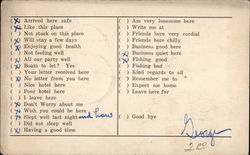 (X) Arrived here safe
(X) Like this place
( ) Not stuck on this place
(X) Will stay a few days
(X) Enjoying good health
( ) Not feeling well
(X) All our party well
(X) Boats to let? Yes
( ) Your letter received here
(X) No letter from you here
( ) Nice hotel here
( ) Poor hotel here
( ) I leave here
(X) Don't Worry about me
(X) Wish you could be here
(X) Slept well last night and here
( ) Did not sleep well
(X) Having a good time
( ) Am very lonesome here
( ) Write me at
( ) Friends here very cordial
( ) Friends here chilly
( ) Business good here
(X) Business quiet here
(X) Fishing good
( ) Fishing bad
( ) Kind regards to all
( ) Remember me to
( ) Expect me home
( ) Leave here for
( ) Good bye
George
2.00